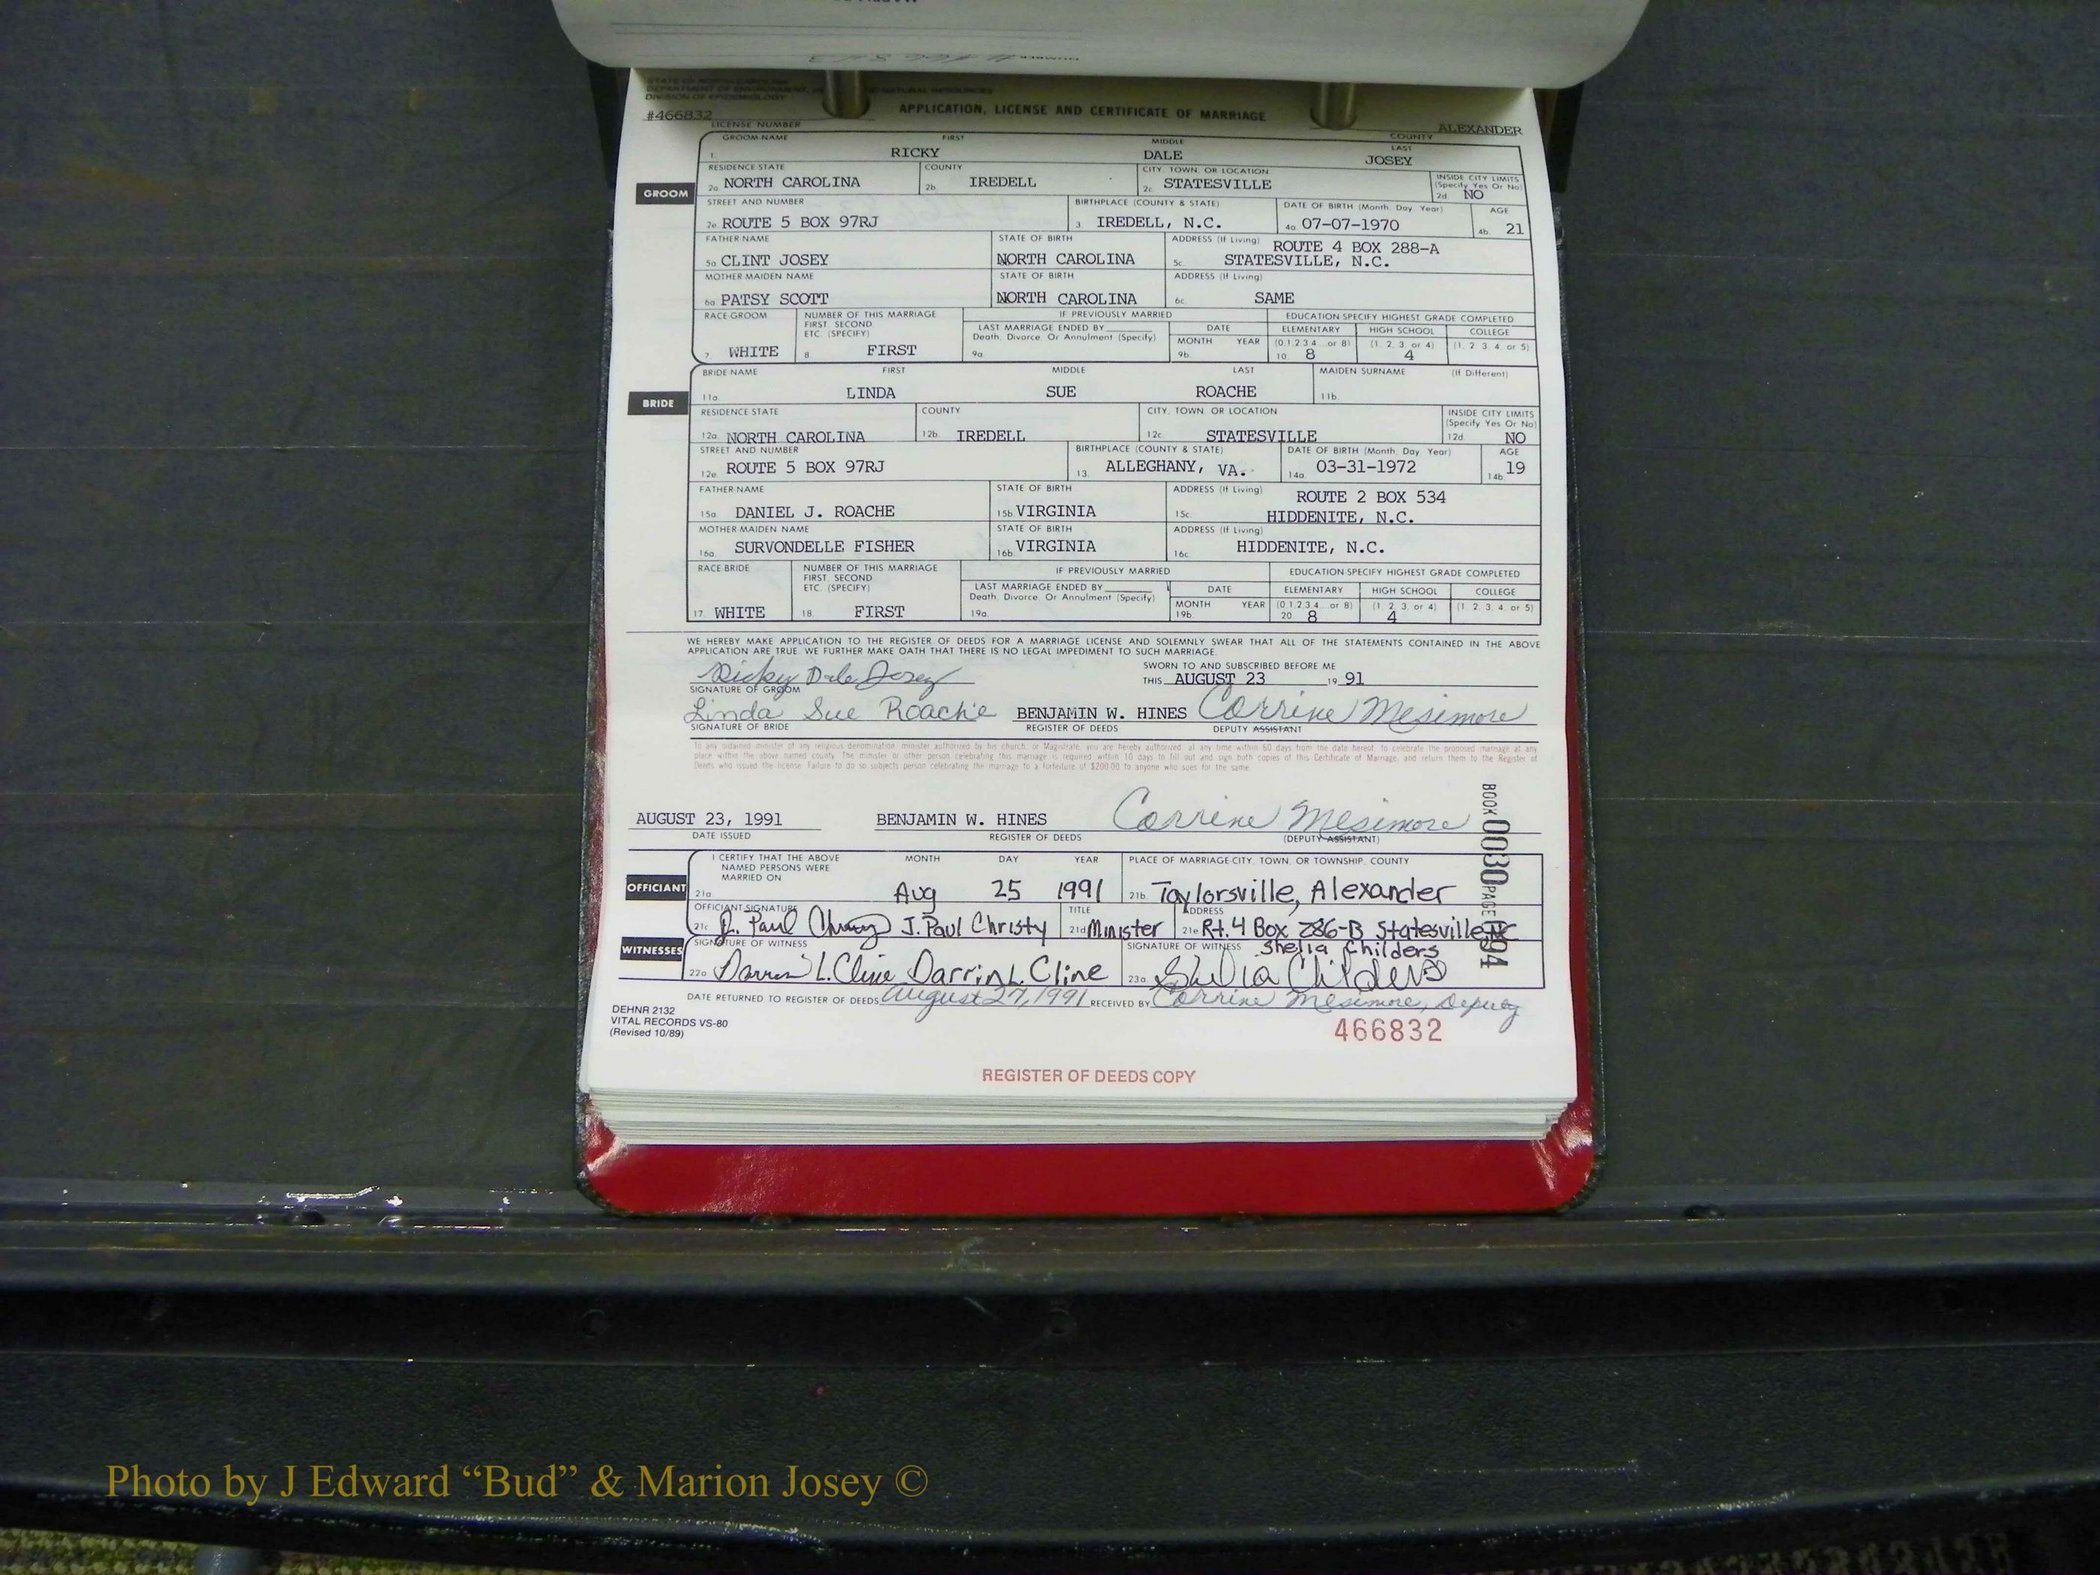 STATE OF NORTH CAROLINA
DEPARTMENT OF ENVIRONMENT, AND NATURAL RESOURCES
DIVISION OF EPIDEMIOLOGY
#466832 APPLICATION, LICENSE AND CERTIFICATE OF MARRIAGE ALEXANDER
LICENSE NUMBER COUNTY
GROOM-NAME FIRST MIDDLE LAST
1. RICKY DALE JOSEY
RESIDENCE-STATE COUNTY CITY, TOWN, OR LOCATION INSIDE CITY LIMITS (Specify Yes Or No)
GROOM
2a. NORTH CAROLINA 2b. IREDELL 2c. STATESVILLE 2d. NO
STREET AND NUMBER BIRTHPLACE (COUNTY & STATE) DATE OF BIRTH (Month, Day, Year) AGE
2e. ROUTE 5 BOX 97RJ 3. IREDELL, N.C. 4a. 07-07-1970 4b. 21
FATHER-NAME STATE OF BIRTH ADDRESS (If Living) ROUTE 4 BOX 288-A
5a. CLINT JOSEY NORTH CAROLINA 5c. STATESVILLE, N.C.
MOTHER MAIDEN NAME STATE OF BIRTH ADDRESS (If Living)
6a. PATSY SCOTT NORTH CAROLINA 6c. SAME
RACE-GROOM NUMBER OF THIS MARRIAGE FIRST, SECOND ETC. (SPECIFY) IF PREVIOUSLY MARRIED EDUCATION-SPECIFY HIGHEST GRADE COMPLETED
LAST MARRIAGE ENDED BY DATE ELEMENTARY HIGH SCHOOL COLLEGE
Death, Divorce, Or Annulment (Specify) MONTH YEAR (0 1 2 3 4 ... or 8) (1, 2, 3, or 4) (1, 2, 3, 4, or 5)
7. WHITE 8. FIRST 9a. 9b. 10. 8 4
BRIDE NAME FIRST MIDDLE LAST MAIDEN SURNAME (If Different)
11a. LINDA SUE ROACHE 11b.
BRIDE
RESIDENCE STATE COUNTY CITY, TOWN, OR LOCATION INSIDE CITY LIMITS (Specify Yes Or No)
12a. NORTH CAROLINA 12b. IREDELL 12c. STATESVILLE 12d. NO
STREET AND NUMBER BIRTHPLACE (COUNTY & STATE) DATE OF BIRTH (Month, Day, Year) AGE
12e. ROUTE 5 BOX 97RJ 13. ALLEGHANY, VA. 14a. 03-31-1972 14b. 19
FATHER-NAME STATE OF BIRTH ADDRESS (If Living) ROUTE 2 BOX 534
15a. DANIEL J. ROACHE 15b. VIRGINIA 15c. HIDDENITE, N.C.
MOTHER MAIDEN NAME STATE OF BIRTH ADDRESS (If Living)
16a. SURVONDELLE FISHER 16b. VIRGINIA 16c. HIDDENITE, N.C.
RACE BRIDE NUMBER OF THIS MARRIAGE FIRST, SECOND ETC. (SPECIFY) IF PREVIOUSLY MARRIED EDUCATION-SPECIFY HIGHEST GRADE COMPLETED
LAST MARRIAGE ENDED BY DATE ELEMENTARY HIGH SCHOOL COLLEGE
Death, Divorce, Or Annulment (Specify) MONTH YEAR (0 1 2 3 4 ... or 8) (1, 2, 3, or 4) (1, 2, 3, 4, or 5)
17. WHITE 18. FIRST 19a. 19b. 20 8 4
WE HEREBY MAKE APPLICATION TO THE REGISTER OF DEEDS FOR A MARRIAGE LICENSE AND SOLEMNLY SWEAR THAT ALL OF THE STATEMENTS CONTAINED IN THE ABOVE
APPLICATION ARE TRUE. WE FURTHER MAKE OATH THAT THERE IS NO LEGAL IMPEDIMENT TO SUCH MARRIAGE.
Ricky Dale Josey SWORN TO AND SUBSCRIBED BEFORE ME
SIGNATURE OF GROOM THIS AUGUST 23 19 91
Linda Sue Roache BENJAMIN W. HINES Corrine Mesimore
SIGNATURE OF BRIDE REGISTER OF DEEDS DEPUTY ASSISTANT
To any ordained minister of any religious denomination, minister authorized by his church, or Magistrate, you are hereby authorized, at any time within 60 days from the date hereof, to celebrate the proposed marriage at any
place within the above named county. The minister or other person celebrating this marriage is required within 10 days to fill out and sign both copies of this Certificate of Marriage, and return them to the Register of
Deeds who issued the license. Failure to do so subjects person celebrating the marriage to a forfeiture of $200.00 to anyone who sues for the same.
AUGUST 23, 1991 BENJAMIN W. HINES Corrine Mesimore
DATE ISSUED REGISTER OF DEEDS (DEPUTY ASSISTANT)
BOOK 0030 PAGE 0194
I CERTIFY THAT THE ABOVE NAMED PERSONS WERE MARRIED ON MONTH DAY YEAR PLACE OF MARRIAGE-CITY, TOWN, OR TOWNSHIP, COUNTY
OFFICIANT
21a. Aug 25 1991 21b. Taylorsville, Alexander
OFFICIANT SIGNATURE TITLE ADDRESS
21c. J. Paul Christy J. Paul Christy 21d Minister 21e Rt. 4 Box 286-B Statesville, NC
WITNESSES
SIGNATURE OF WITNESS SIGNATURE OF WITNESS Shelia Childers
22a. Darrin L. Cline Darrin L. Cline 23a. Shelia Childers
DATE RETURNED TO REGISTER OF DEEDS August 27, 1991 RECEIVED BY Corrine Mesimore, Deputy
DEHNR 2132
VITAL RECORDS VS-80
(Revised 10/89)
466832
REGISTER OF DEEDS COPY
Photo by J Edward “Bud” & Marion Josey ©